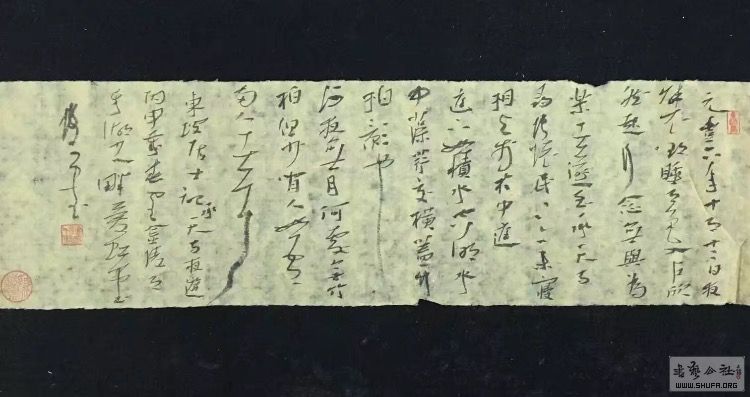 元豐六年十月十二日夜
解衣欲睡月色入户欣
然起行念無與為
樂者遂至承天寺
尋張懷民亦未寢
相與步於中庭
庭下如積水空明水
中藻荇交橫蓋竹
柏影也
何夜無月何處無竹
柏但少閒人如吾
兩人者耳
東坡居士記承天寺夜遊
丙申
湖之畔
WWW.SHUFA.ORG